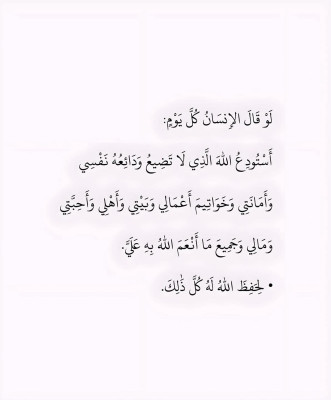 لَوْ قَالَ الإِنسَانُ كُلَّ يَوْمٍ:
أَسْتَودِعُ اللهَ الَّذِي لَا تَضِيعُ وَدَائِعُهُ نَفْسِي
وَأَمَانَتِي وَخَوَاتِيمَ أَعْمَالِي وَبَيْتِي وَأَهْلِي وَأَحِبَّتِي
وَمَالِي وَجَمِيعَ مَا أَنْعَمَ اللهُ بِهِ عَلَيَّ.
• لِحَفِظَ اللهُ لَهُ كُلَّ ذَٰلِكَ.